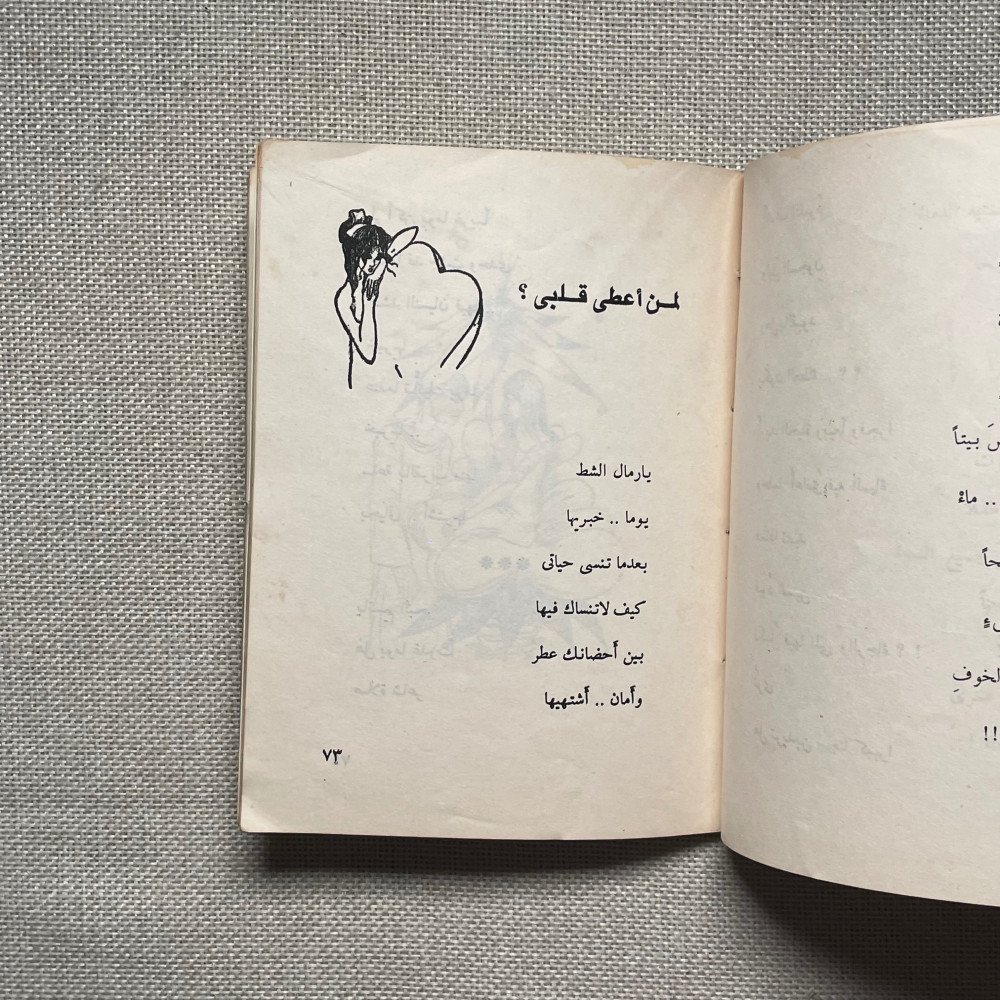 لمن أعطى قلبى ؟
يارمال الشط
يوما .. خبريها
بعدما تنسى حياتى
كيف لاتنساك فيها
بين أَحضانك عطر
وأَمان .. أَشتهيها
٧٣
بيتاً
.. ماءْ
الخوفِ
!!